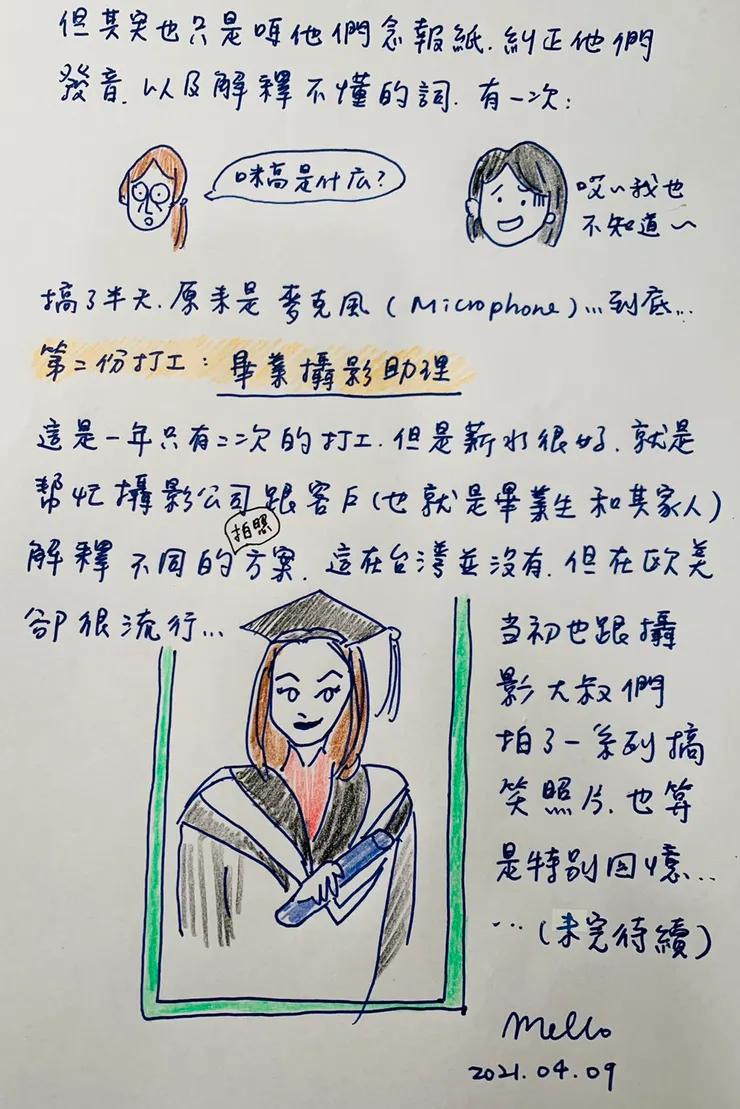 但其实也只是陪他們念報紙. 糾正他們
發音. 以及解釋不懂的詞. 有一次:
咪高是什広?
哎~我也
不知道~
搞了半天. 原来是麥克風 (Microphone)...到底...
第二份打工: 畢業攝影助理
這是一年只有二次的打工. 但是薪水很好. 就是
幫忙攝影公司跟客戶(也就是畢業生和其家人)
解釋不同的拍照方案. 這在台灣並沒有. 但在欧美
卻很流行...
当初也跟攝
影大叔們
拍了一系列搞
笑照片. 也算
是特別回憶..
...(未完待續)
Mello
2021.04.09